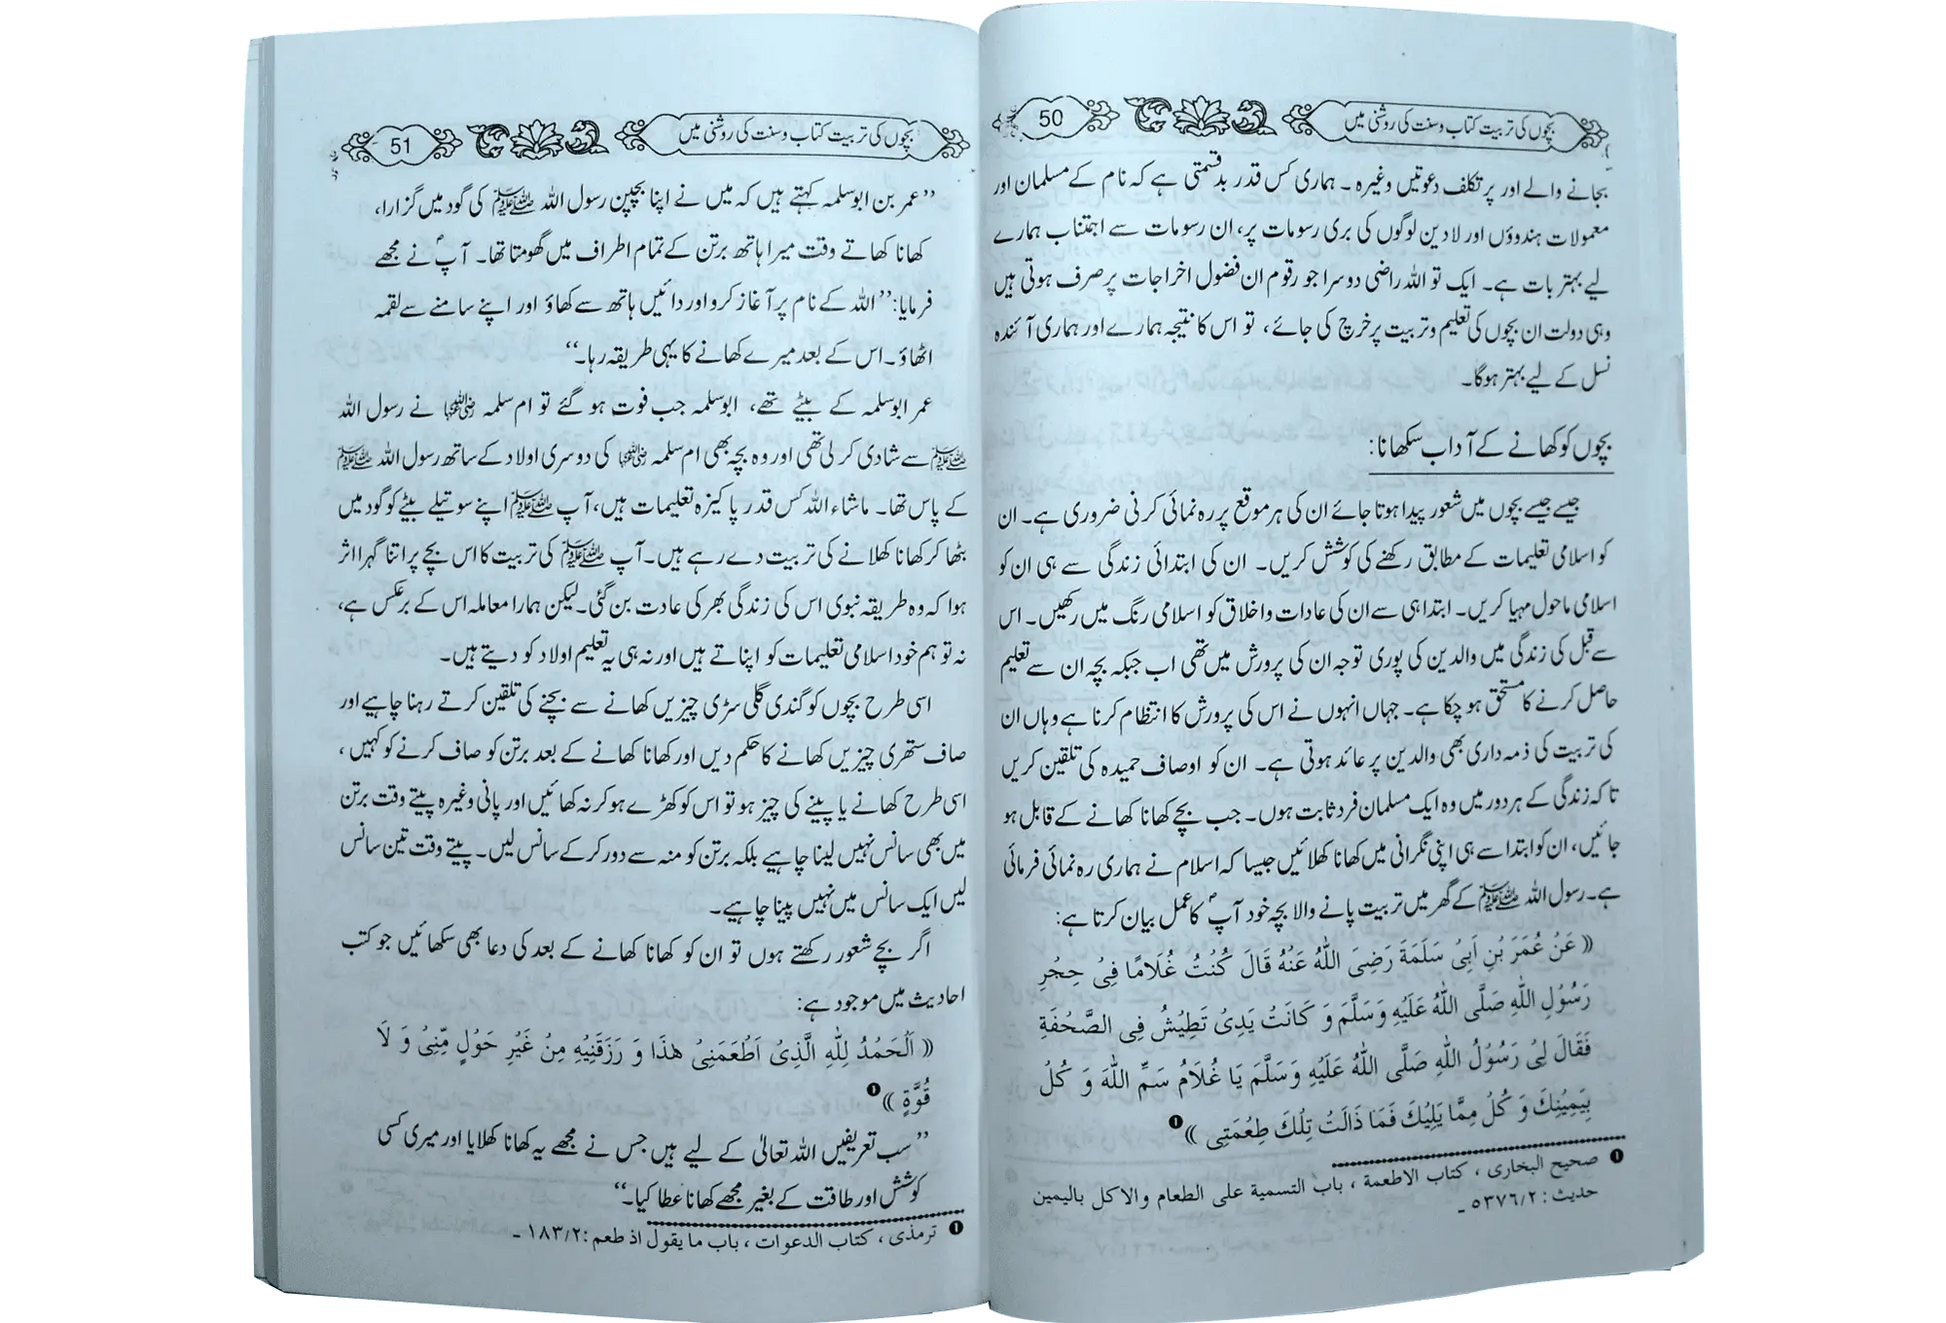 بچوں کی تربیت کتاب و سنت کی روشنی میں 50
بجانے والے اور پر تکلف دعوتیں وغیرہ ۔ ہماری کس قدر بدقسمتی ہے کہ نام کے مسلمان اور
معمولات ہندوؤں اور لادین لوگوں کی بری رسومات پر، ان رسومات سے اجتناب ہمارے
لیے بہتر بات ہے۔ ایک تو اللہ راضی دوسرا جو رقوم ان فضول اخراجات پر صرف ہوتی ہیں
وہی دولت ان بچوں کی تعلیم و تربیت پر خرچ کی جائے ، تو اس کا نتیجہ ہمارے اور ہماری آئندہ
نسل کے لیے بہتر ہوگا۔
بچوں کو کھانے کے آداب سکھانا:
جیسے جیسے بچوں میں شعور پیدا ہوتا جائے ان کی ہر موقع پر رہ نمائی کرنی ضروری ہے۔ ان
کو اسلامی تعلیمات کے مطابق رکھنے کی کوشش کریں۔ ان کی ابتدائی زندگی سے ہی ان کو
اسلامی ماحول مہیا کریں۔ ابتدا ہی سے ان کی عادات و اخلاق کو اسلامی رنگ میں رکھیں۔ اس
سے قبل کی زندگی میں والدین کی پوری توجہ ان کی پرورش میں تھی اب جبکہ بچہ ان سے تعلیم
حاصل کرنے کا مستحق ہو چکا ہے۔ جہاں انہوں نے اس کی پرورش کا انتظام کرنا ہے وہاں ان
کی تربیت کی ذمہ داری بھی والدین پر عائد ہوتی ہے۔ ان کو اوصاف حمیدہ کی تلقین کریں
تاکہ زندگی کے ہر دور میں وہ ایک مسلمان فرد ثابت ہوں۔ جب بچے کھانا کھانے کے قابل ہو
جائیں، ان کو ابتدا سے ہی اپنی نگرانی میں کھانا کھلائیں جیسا کہ اسلام نے ہماری رہ نمائی فرمائی
ہے۔ رسول اللہ ﷺ کے گھر میں تربیت پانے والا بچہ خود آپؐ کا عمل بیان کرتا ہے:
(( عَنْ عُمَرَ بْنِ اَبِیْ سَلَمَةَ رَضِیَ اللّٰهُ عَنْهُ قَالَ کُنْتُ غُلَامًا فِیْ حِجْرِ
رَسُوْلِ اللّٰهِ صَلَّی اللّٰهُ عَلَیْهِ وَسَلَّمَ وَ کَانَتْ یَدِیْ تَطِیْشُ فِی الصَّحْفَةِ
فَقَالَ لِیْ رَسُوْلُ اللّٰهِ صَلَّی اللّٰهُ عَلَیْهِ وَسَلَّمَ یَا غُلَامُ سَمِّ اللّٰهَ وَ کُلْ
بِیَمِیْنِكَ وَ کُلْ مِمَّا یَلِیْكَ فَمَا ذَالَتْ تِلْكَ طِعْمَتِی ))❶
❶ صحیح البخاری ، کتاب الاطعمة ، باب التسمیة علی الطعام والاکل بالیمین
حدیث : ٥٣٧٦/٢ ـ
بچوں کی تربیت کتاب و سنت کی روشنی میں 51
’’عمر بن ابو سلمہ کہتے ہیں کہ میں نے اپنا بچپن رسول اللہ ﷺ کی گود میں گزارا،
کھانا کھاتے وقت میرا ہاتھ برتن کے تمام اطراف میں گھومتا تھا۔ آپؐ نے مجھے
فرمایا: ’’اللہ کے نام پر آغاز کرو اور دائیں ہاتھ سے کھاؤ اور اپنے سامنے سے لقمہ
اٹھاؤ۔ اس کے بعد میرے کھانے کا یہی طریقہ رہا۔‘‘
عمر ابوسلمہ کے بیٹے تھے، ابوسلمہ جب فوت ہو گئے تو ام سلمہ رضی اللہ عنہا نے رسول اللہ
ﷺ سے شادی کر لی تھی اور وہ بچہ بھی ام سلمہ رضی اللہ عنہا کی دوسری اولاد کے ساتھ رسول اللہ ﷺ
کے پاس تھا۔ ماشاء اللہ کس قدر پاکیزہ تعلیمات ہیں، آپ ﷺ اپنے سوتیلے بیٹے کو گود میں
بٹھا کر کھانا کھلانے کی تربیت دے رہے ہیں۔ آپ ﷺ کی تربیت کا اس بچے پر اتنا گہرا اثر
ہوا کہ وہ طریقہ نبوی اس کی زندگی بھر کی عادت بن گئی۔ لیکن ہمارا معاملہ اس کے برعکس ہے،
نہ تو ہم خود اسلامی تعلیمات کو اپناتے ہیں اور نہ ہی یہ تعلیم اولاد کو دیتے ہیں۔
اسی طرح بچوں کو گندی گلی سڑی چیزیں کھانے سے بچنے کی تلقین کرتے رہنا چاہیے اور
صاف ستھری چیزیں کھانے کا حکم دیں اور کھانا کھانے کے بعد برتن کو صاف کرنے کو کہیں ،
اسی طرح کھانے یا پینے کی چیز ہو تو اس کو کھڑے ہو کر نہ کھائیں اور پانی وغیرہ پیتے وقت برتن
میں بھی سانس نہیں لینا چاہیے بلکہ برتن کو منہ سے دور کر کے سانس لیں۔ پیتے وقت تین سانس
لیں ایک سانس میں نہیں پینا چاہیے۔
اگر بچے شعور رکھتے ہوں تو ان کو کھانا کھانے کے بعد کی دعا بھی سکھائیں جو کتب
احادیث میں موجود ہے:
(( اَلْحَمْدُ لِلّٰهِ الَّذِیْ اَطْعَمَنِیْ هٰذَا وَ رَزَقَنِیْهِ مِنْ غَیْرِ حَوْلٍ مِّنِّیْ وَ لَا
قُوَّةٍ ))❶
’’سب تعریفیں اللہ تعالیٰ کے لیے ہیں جس نے مجھے یہ کھانا کھلایا اور میری کسی
کوشش اور طاقت کے بغیر مجھے کھانا عطا کیا۔‘‘
❶ ترمذی ، کتاب الدعوات ، باب ما یقول اذ طعم : ١٨٣/٢ ـ